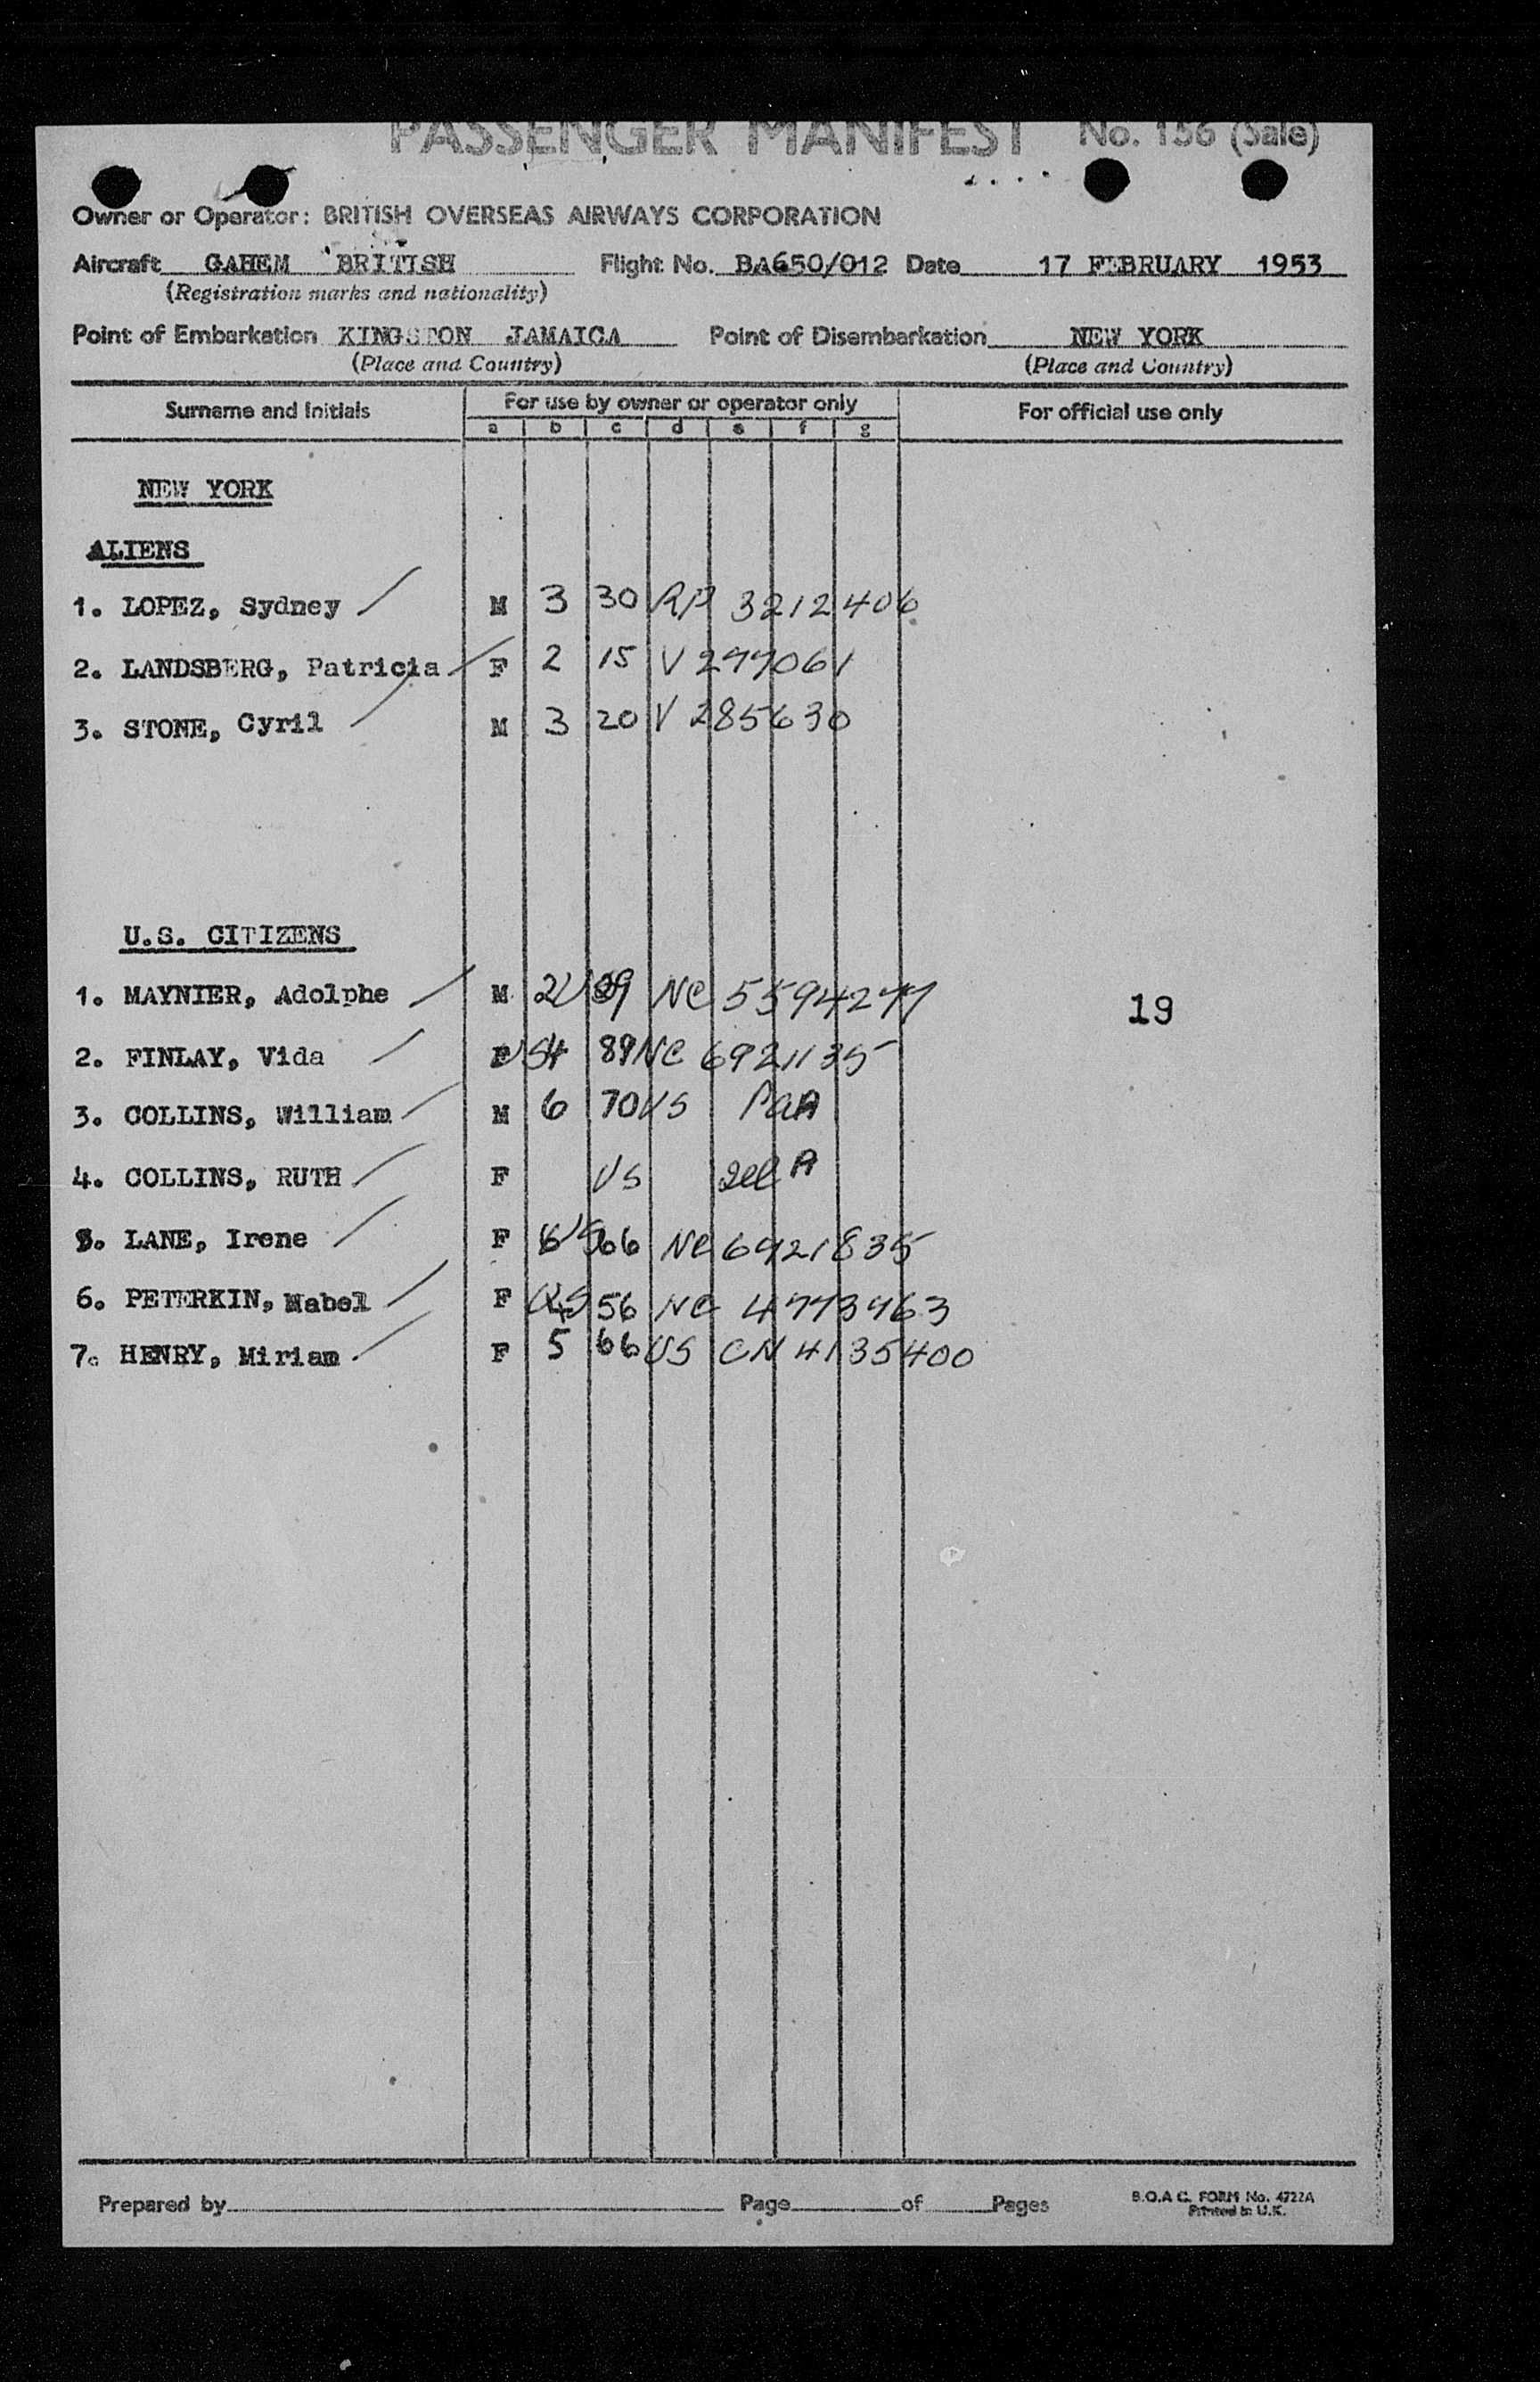 PASSENGER MANIFEST No. 156 (Sale)
Owner or Operator: BRITISH OVERSEAS AIRWAYS CORPORATION
Aircraft GAHEM BRITISH Flight No. BA650/012 Date 17 FEBRUARY 1953
(Registration marks and nationality)
Point of Embarkation KINGSTON JAMAICA Point of Disembarkation NEW YORK
(Place and Country) (Place and Country)
Surname and Initials For use by owner or operator only For official use only
a b c d e f g
NEW YORK
ALIENS
1. LOPEZ, Sydney M 3 30 RP 3212406
2. LANDSBERG, Patricia F 2 15 V 277061
3. STONE, Cyril M 3 20 V 285630
U.S. CITIZENS
1. MAYNIER, Adolphe M 2 NC 5594277 19
2. FINLAY, Vida 89 NC 6921135
3. COLLINS, William M 6 70 US
4. COLLINS, RUTH F US
5. LANE, Irene F 6 US 66 NC 6921835
6. PETERKIN, Mabel F US 56 NC 4773763
7. HENRY, Miriam F 5 66 US CN 4135400
Prepared by Page of Pages B.O.A.C. FORM No. 4722A
Printed in U.K.